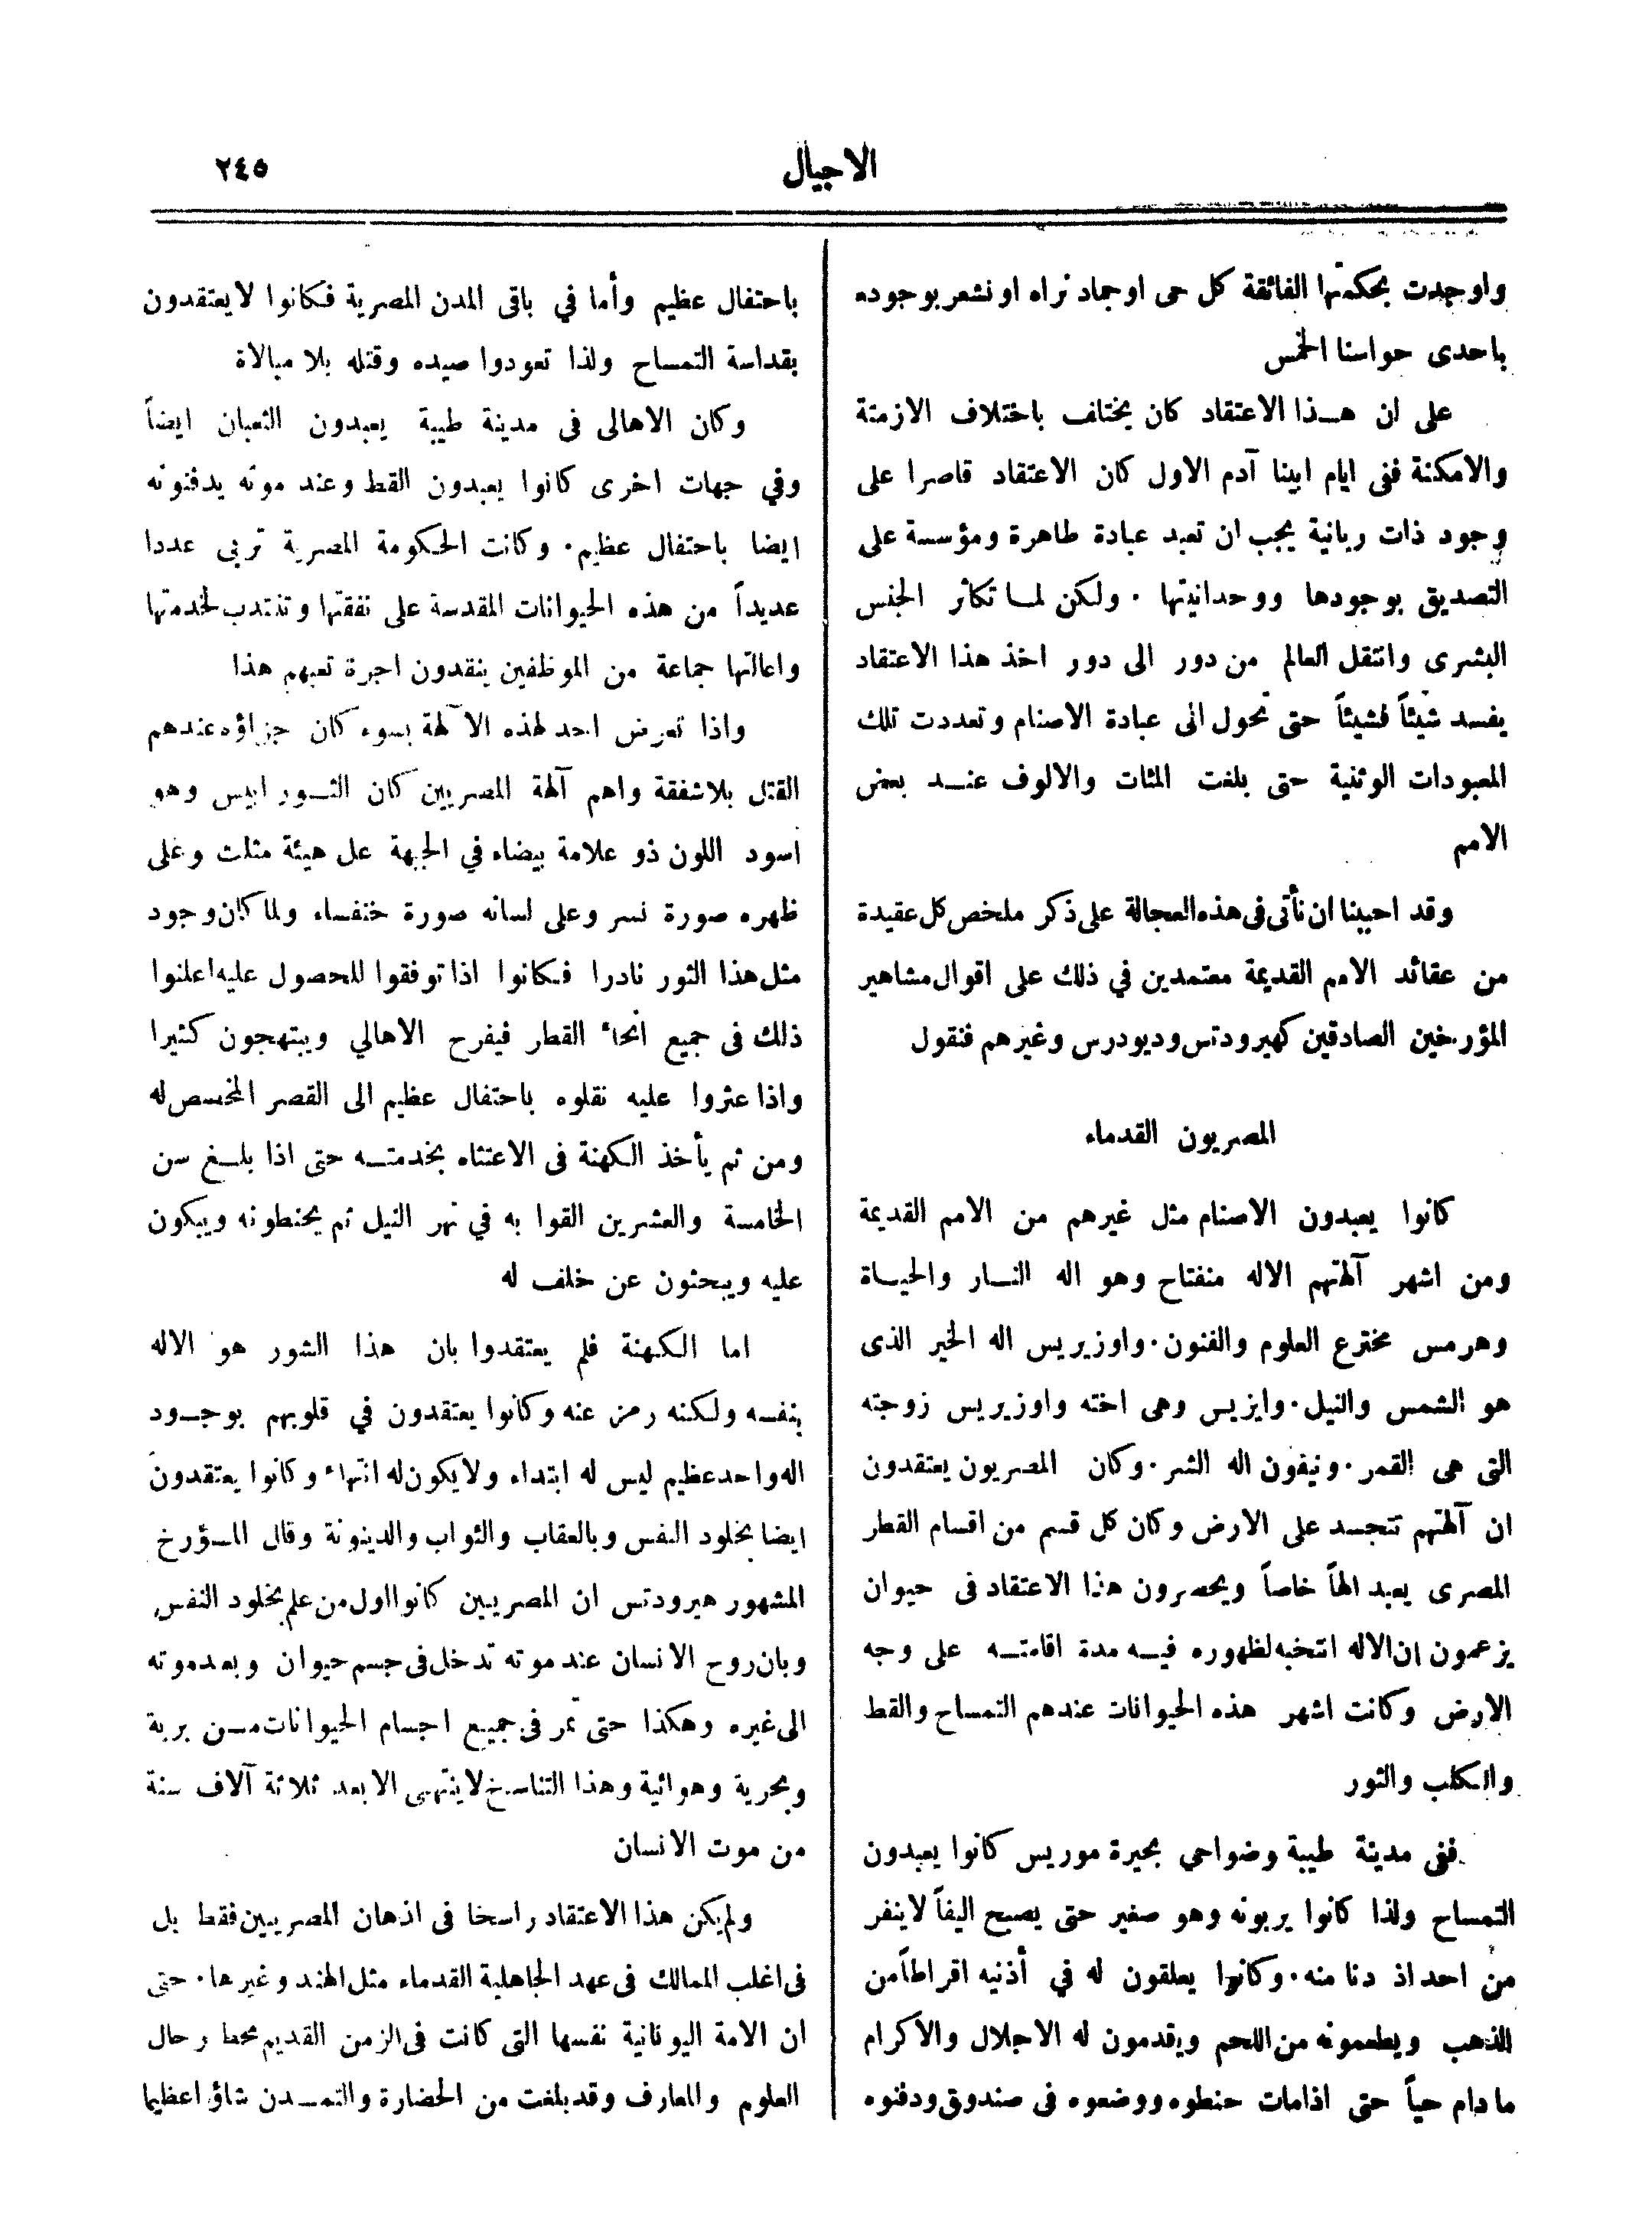 الاجيال
٢٤٥
واوجدت بحكمتها الفائقة كل حى او جماد نراه او نشعر بوجوده
باحدى حواسنا الخمس
على ان هذا الاعتقاد كان يختلف باختلاف الازمنة
والامكنة ففى ايام ابينا آدم الاول كان الاعتقاد قاصرا على
وجود ذات ربانية يجب ان تعبد عبادة طاهرة ومؤسسة على
التصديق بوجودها ووحدانيتها . ولكن لما تكاثر الجنس
البشرى وانتقل العالم من دور الى دور اخذ هذا الاعتقاد
يفسد شيئاً فشيئاً حتى تحول الى عبادة الاصنام وتعددت تلك
المعبودات الوثنية حتى بلغت المئات والالوف عند بعض
الامم
وقد احببنا ان نأتى فى هذه العجالة على ذكر ملخص كل عقيدة
من عقائد الامم القديمة معتمدين في ذلك على اقوال مشاهير
المؤرخين الصادقين كهيرودتس وديودرس وغيرهم فنقول
المصريون القدماء
كانوا يعبدون الاصنام مثل غيرهم من الامم القديمة
ومن اشهر آلهتهم الاله منفتاح وهو اله النار والحياة
وهرمس مخترع العلوم والفنون . واوزيريس اله الخير الذى
هو الشمس والنيل . وايزيس وهى اخته واوزيريس زوجته
التى هى القمر . وتيفون اله الشر . وكان المصريون يعتقدون
ان آلهتهم تتجسد على الارض وكان كل قسم من اقسام القطر
المصرى يعبد الهاً خاصاً ويحصرون هذا الاعتقاد فى حيوان
يزعمون ان الاله انتخبه لظهوره فيه مدة اقامته على وجه
الارض وكانت اشهر هذه الحيوانات عندهم التمساح والقط
والكلب والثور
ففى مدينة طيبة وضواحي بحيرة موريس كانوا يعبدون
التمساح ولذا كانوا يربونه وهو صغير حتى يصبح اليفاً لاينفر
من احد اذ دنا منه . وكانوا يعلقون له في أذنيه اقراطاً من
الذهب ويطعمونه من اللحم ويقدمون له الاجلال والاكرام
ما دام حياً حتى اذا مات حنطوه ووضعوه فى صندوق ودفنوه
باحتفال عظيم وأما في باقى المدن المصرية فكانوا لايعتقدون
بقداسة التمساح ولذا تعودوا صيده وقتله بلا مبالاة
وكان الاهالى فى مدينة طيبة يعبدون الثعبان ايضاً
وفي جهات اخرى كانوا يعبدون القط وعند موته يدفنونه
ايضا باحتفال عظيم . وكانت الحكومة المصرية تربى عددا
عديداً من هذه الحيوانات المقدسة على نفقتها وتنتدب لخدمتها
واعالتها جماعة من الموظفين ينقدون اجرة تعبهم هذا
واذا تعرض احد لهذه الآلهة بسوء كان جزاؤه عندهم
القتل بلا شفقة واهم آلهة المصريين كان الثور ابيس وهو
اسود اللون ذو علامة بيضاء في الجبهة عل هيئة مثلث وعلى
ظهره صورة نسر وعلى لسانه صورة خنفساء ولما كان وجود
مثل هذا الثور نادرا فكانوا اذا توفقوا للحصول عليه اعلنوا
ذلك فى جميع انحاء القطر فيفرح الاهالي ويبتهجون كثيرا
واذا عثروا عليه نقلوه باحتفال عظيم الى القصر المخصص له
ومن ثم يأخذ الكهنة فى الاعتناء بخدمته حتى اذا بلغ سن
الخامسة والعشرين القوا به في نهر النيل ثم يحنطونه ويبكون
عليه ويبحثون عن خلف له
اما الكهنة فلم يعتقدوا بان هذا الثور هو الاله
بنفسه ولكنه رمز عنه وكانوا يعتقدون في قلوبهم بوجود
اله واحد عظيم ليس له ابتداء ولا يكون له انتهاء وكانوا يعتقدون
ايضا بخلود النفس وبالعقاب والثواب والدينونة وقال المؤرخ
المشهور هيرودتس ان المصريين كانوا اول من علم بخلود النفس
وبان روح الانسان عند موته تدخل فى جسم حيوان وبعد موته
الى غيره وهكذا حتى تمر فى جميع اجسام الحيوانات من برية
وبحرية وهوائية وهذا التناسخ لاينتهى الا بعد ثلاثة آلاف سنة
من موت الانسان
ولم يكن هذا الاعتقاد راسخا فى اذهان المصريين فقط بل
فى اغلب الممالك فى عهد الجاهلية القدماء مثل الهند وغيرها . حتى
ان الامة اليونانية نفسها التى كانت فى الزمن القديم محط رحال
العلوم والمعارف وقد بلغت من الحضارة والتمدن شاؤا عظيما